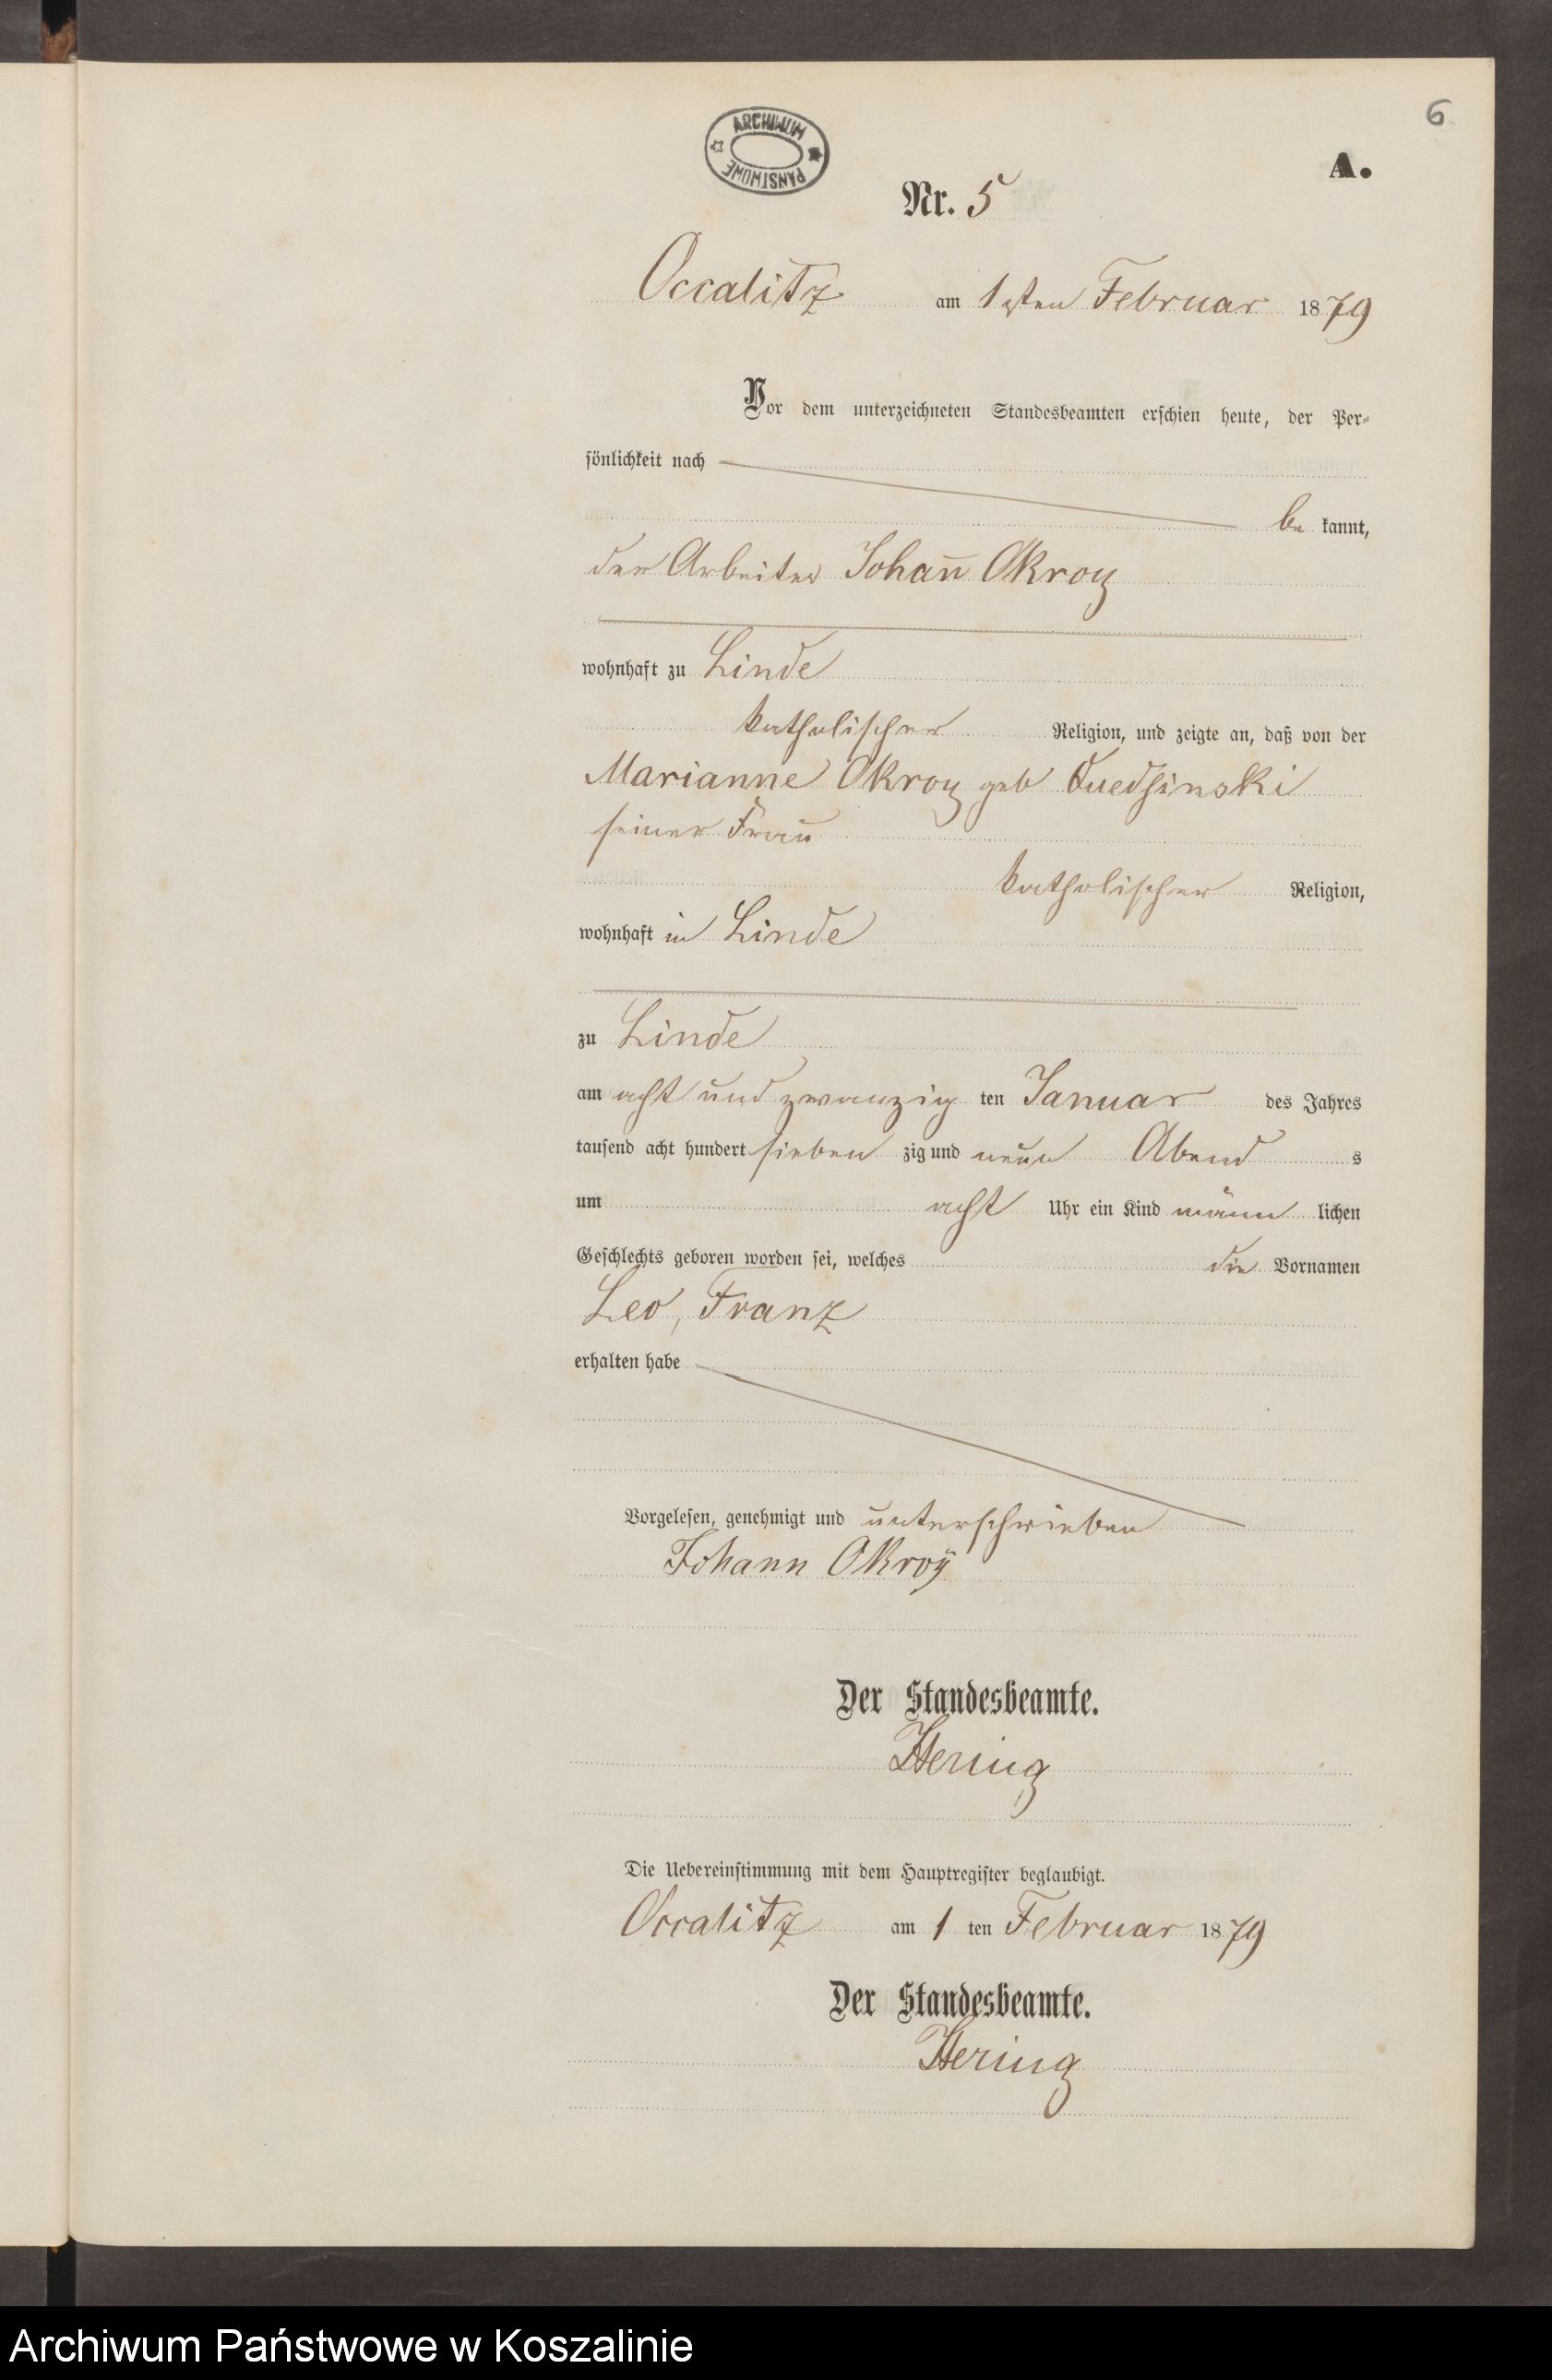 6
ARCHIWUM PAŃSTWOWE
A.
Nr. 5
Occalitz am 1sten Februar 1879
Vor dem unterzeichneten Standesbeamten erschien heute, der Per-
sönlichkeit nach
be kannt,
der Arbeiter Johan̄ Okroy
wohnhaft zu Linde
katholischer Religion, und zeigte an, daß von der
Marianne Okroy geb
seiner Frau
katholischer Religion,
wohnhaft in Linde
zu Linde
am acht und zwanzig ten Januar des Jahres
tausend acht hundert sieben zig und neun Abend s
um acht Uhr ein Kind männ lichen
Geschlechts geboren worden sei, welches die Vornamen
Leo, Franz
erhalten habe
Vorgelesen, genehmigt und unterschrieben
Johann Okroÿ
Der Standesbeamte.
Hering
Die Uebereinstimmung mit dem Hauptregister beglaubigt.
Occalitz am 1 ten Februar 1879
Der Standesbeamte.
Hering
Archiwum Państwowe w Koszalinie